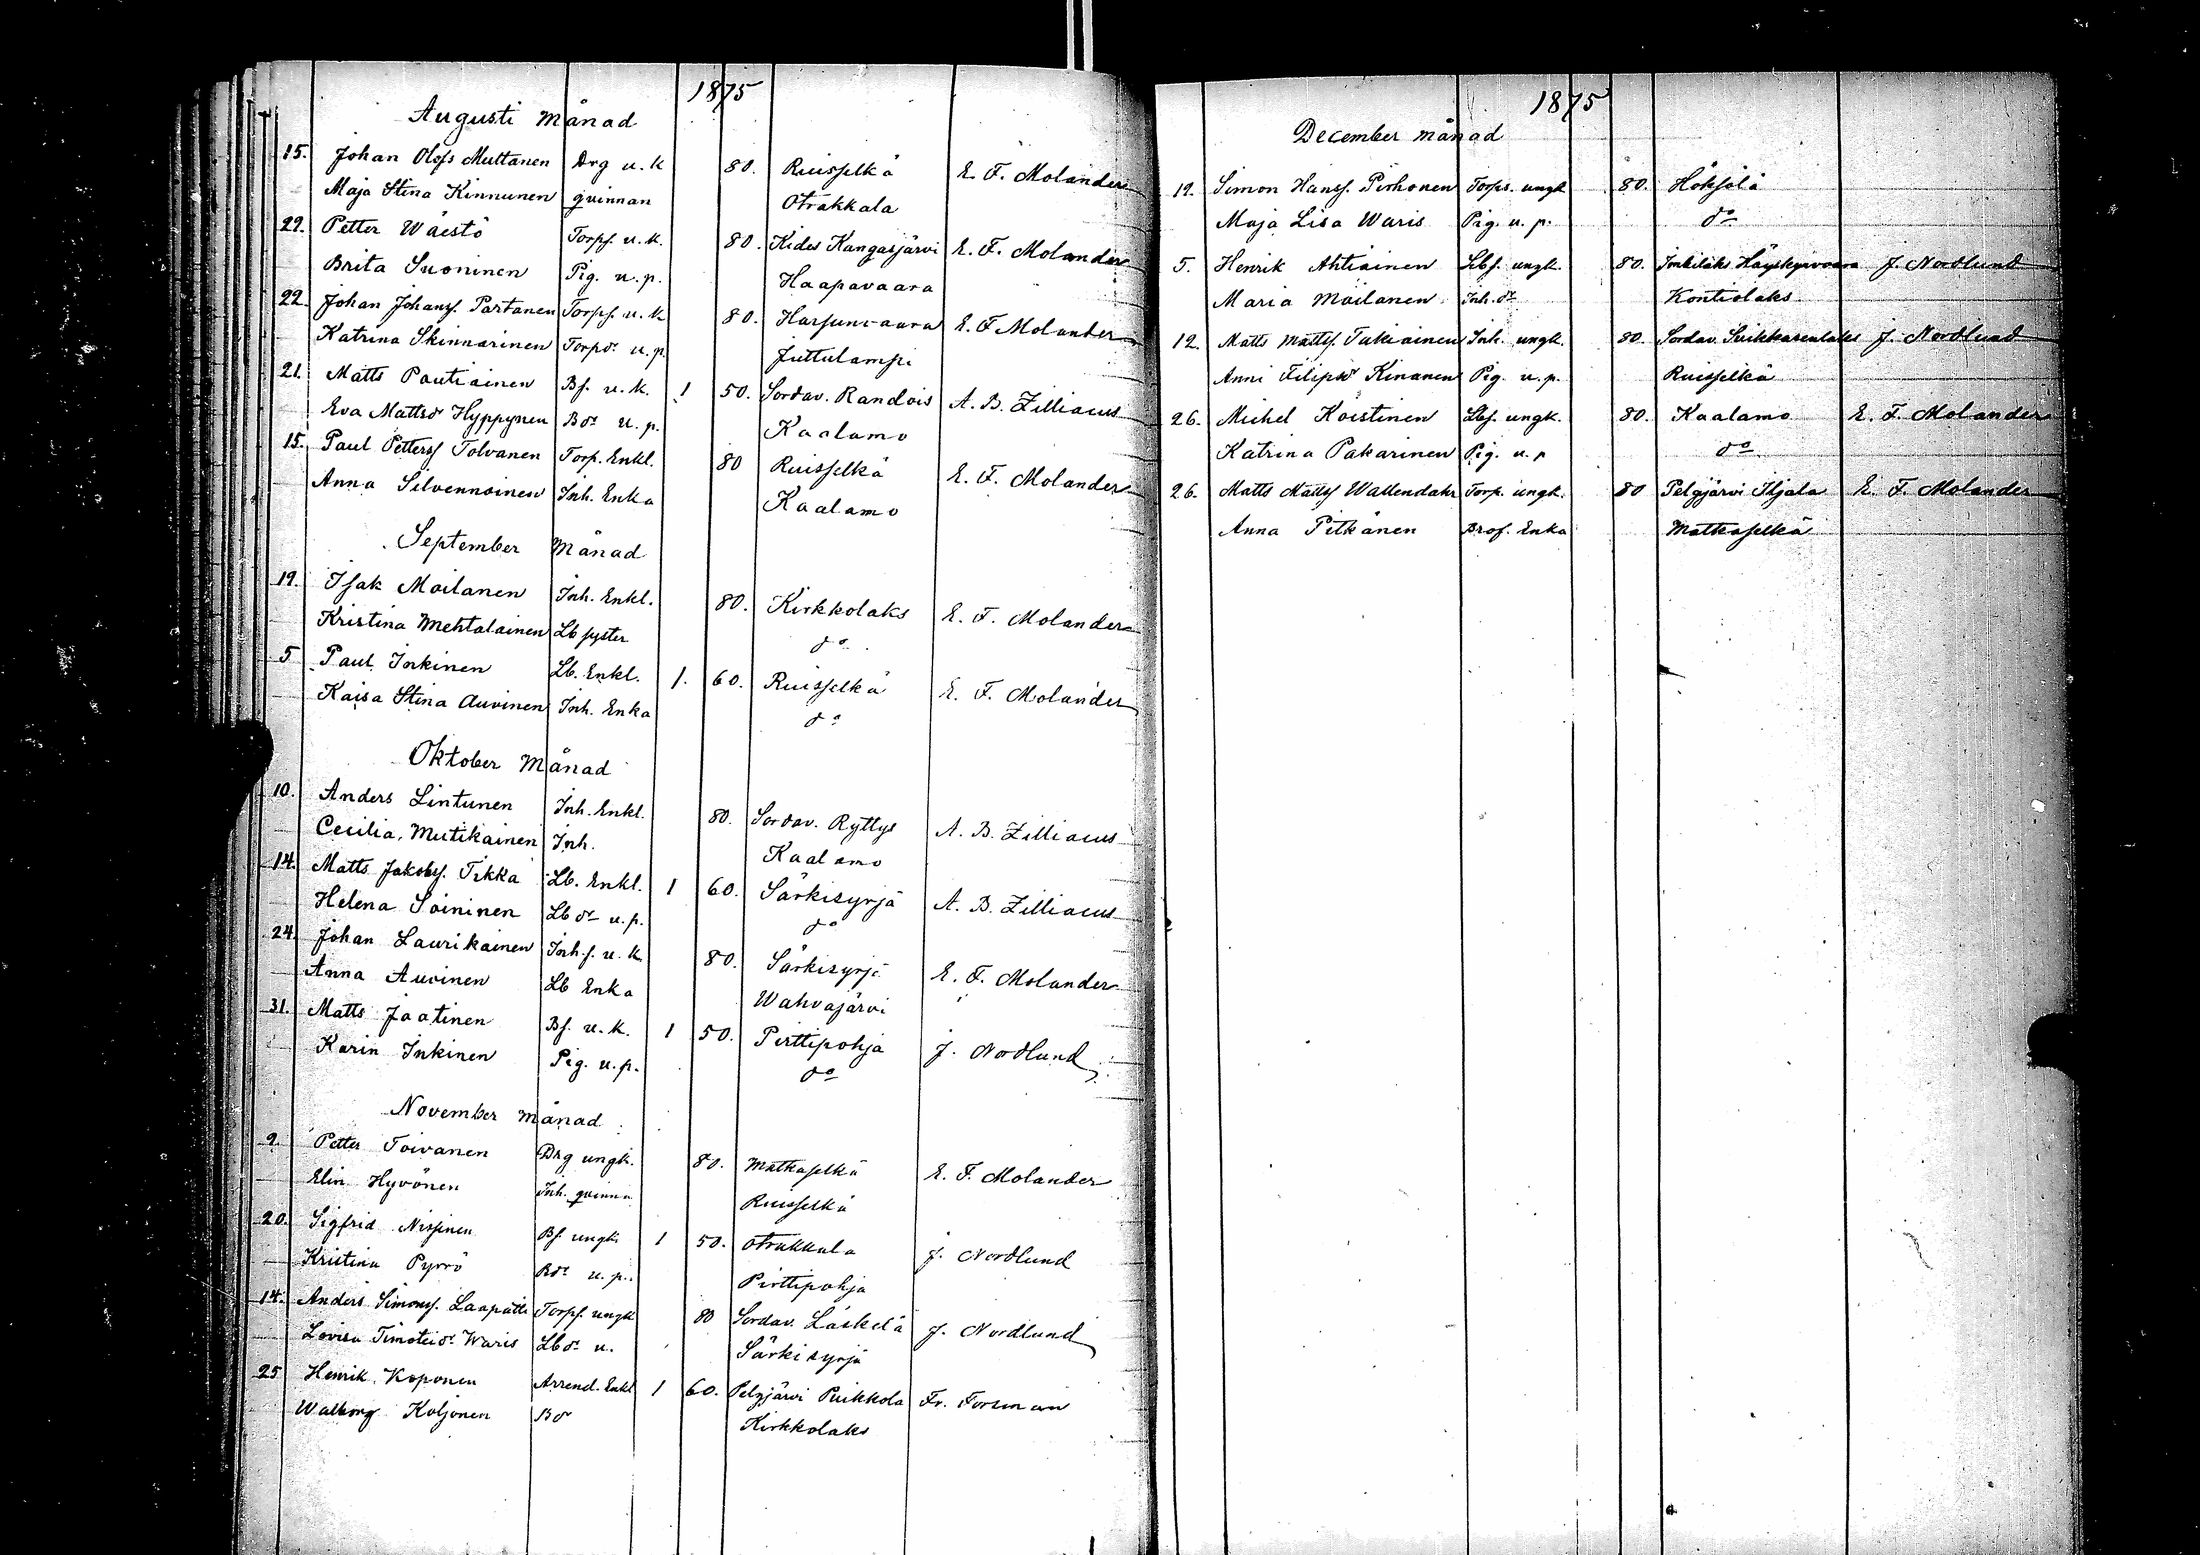 1875
Augusti Månad
15. Johan Olofs Muttanen Drg u. k 80. Ruisselkä E. F. Molander
Maja Stina Kinnunen qvinnan Otrakkala
22. Petter Wäestö Torps. u. k. 80. Kides Kangasjärvi E. F. Molander
Brita Suoninen Pig. u. p. Haapavaara
22. Johan Johans. Partanen Torps. u. k. 80. Harsunvaara E. F. Molander
Katrina Skinnarinen Torpdr u. p. Juttulampi
21. Matts Pautiainen Bs. u. k. 1 50. Sordav. Randois A. B. Zilliacus
Eva Mattsdr Hyppynen Bdr u. p. Kaalamo
15. Paul Petterss Tolvanen Torp. Enkl. 80 Ruisselkä E. F. Molander
Anna Silvennoinen Inh. Enka Kaalamo
September Månad
19. Isak Moilanen Inh. Enkl. 80. Kirkkolaks E. F. Molander
Kristina Mehtalainen Lb syster do
5 Paul Inkinen Lb. Enkl. 1. 60. Ruisselkä E. F. Molander
Kaisa Stina Auvinen Inh. Enka do
Oktober Månad
10. Anders Lintunen Inh. Enkl. 80. Sordav. Ryttys A. B. Zilliacus
Cecilia Mutikainen Inh. Kaalamo
14. Matts Jakobs. Tikka Lb. Enkl. 1 60. Särkisyrjä A. B. Zilliacus
Helena Soininen Lb dr u. p. do
24. Johan Laurikainen Inh.s. u. k. 80. Särkisyrjä E. F. Molander
Anna Auvinen Lb Enka Wahvajärvi
31. Matts Jaatinen Bs. u. k. 1 50. Pirttipohja J. Nordlund
Karin Inkinen Pig. u. p. do
November Månad
9. Petter Toivanen Drg ungk. 80. Matkaselkä E. F. Molander
Elin Hyvönen Inh. qvinna Ruisselkä
20. Sigfrid Nissinen Bs. ungk. 1 50. Otrakkala J. Nordlund
Kristina Pyrrö Bdr u. p. Pirttipohja
14. Anders Simons. Laapatti Torps. ungk 80 Sordav. Läskelä J. Nordlund
Lovisa Timoteidr Waris Lbdr u. Särkisyrjä
25 Henrik Koponen Arrend. Enkl 1 60. Pelgjärvi Puikkola Fr. Forsman
Walborg Koljonen Bd Kirkkolaks
1875
December Månad
12. Simon Hanss. Pirhonen Torps. ungk 80. Höksölä
Maja Lisa Waris Pig. u. p. do
5. Henrik Ahtiainen Lbs. ungk. 80. Imbilaks Häyskynvaara J. Nordlund
Maria Moilanen Inh. dr Kontiolaks
12. Matts Matts. Takiainen Inh. ungk. 80. Sordav. J. Nordlund
Anni Filipsdr Kinanen Pig. u. p. Ruisselkä
26. Michel Koistinen Lbs. ungk. 80. Kaalamo E. F. Molander
Katrina Pakarinen Pig. u. p do
26. Matts Matts Wallendahr Torp. ungk. 80 Pelgjärvi Ihjala E. F. Molander
Anna Pitkänen Enka Matkaselkä